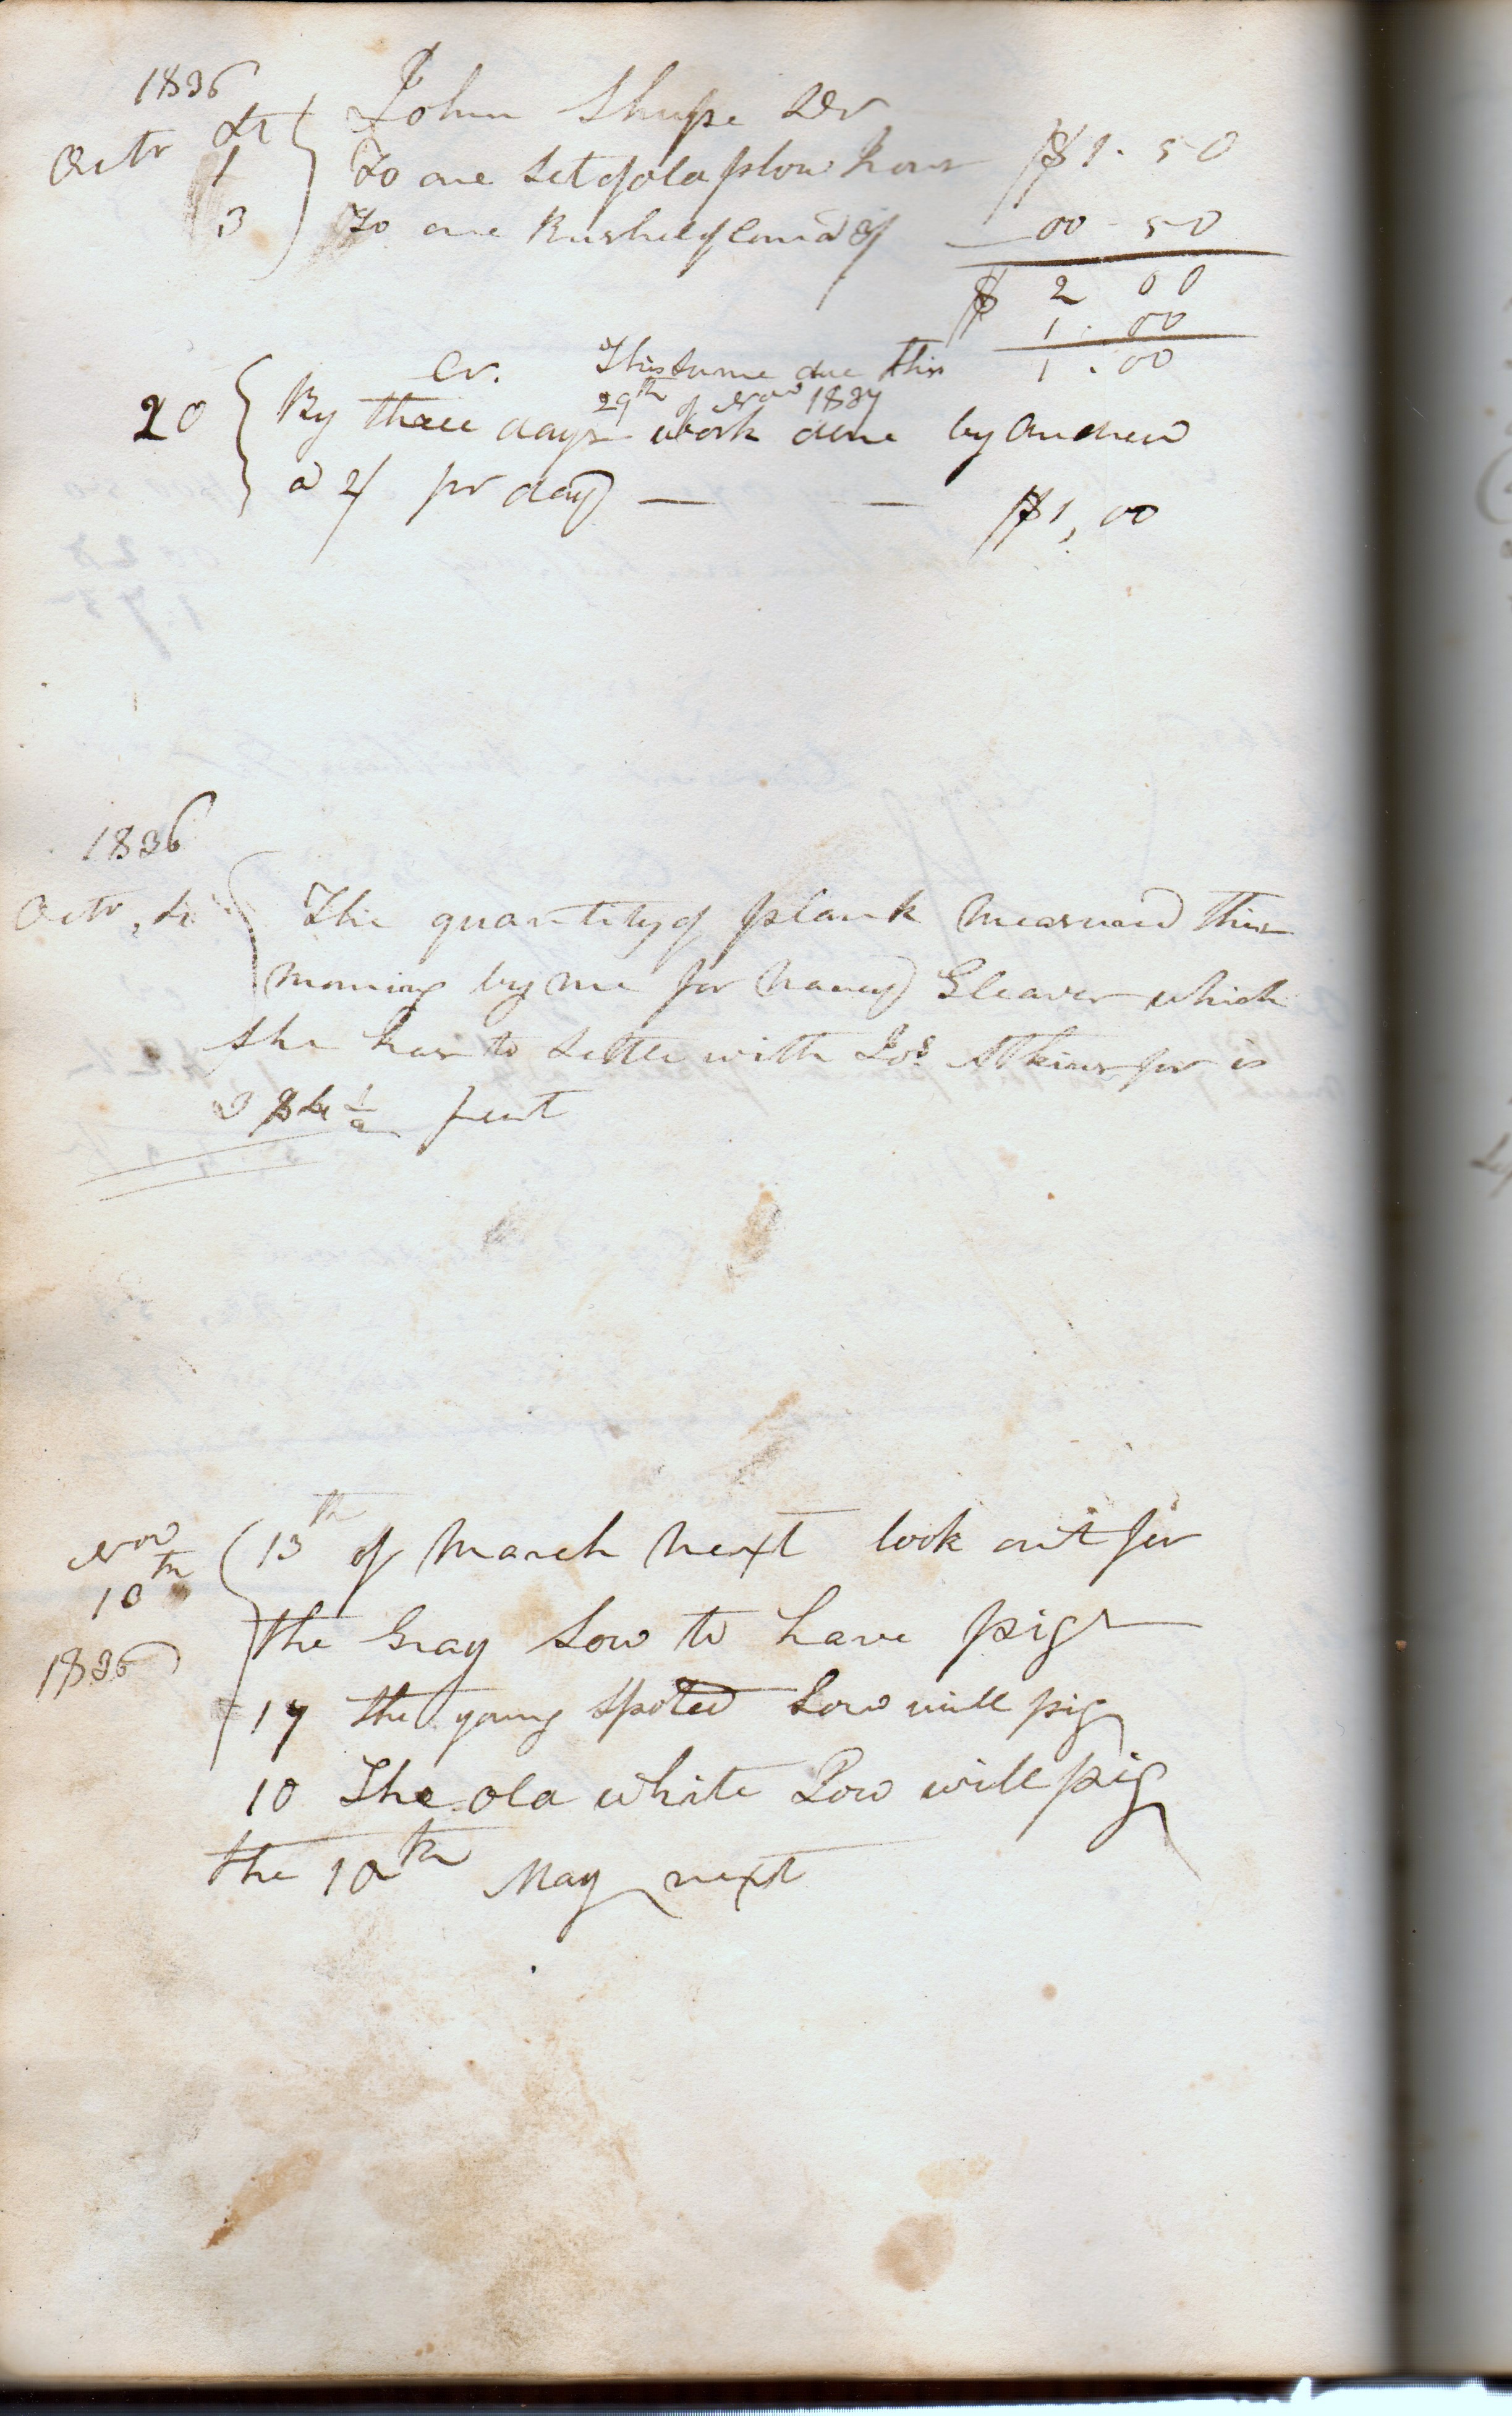 1836
Octr 4 John Shupe Dr
1 To one Set of old plow Irons $1.50
3 To one Bushel of Corn a 3/ 00-50
$ 2 00
1.00
Cr. This sume due this 1.00
29th of Nov 1837
20 By three days work done by Andrew
a 2/ pr day — — $1,00
1836
Octr, 4 The quantity of plank measured this
morning by me for Nancy Cleaver which
she has to settle with Jos Atkins for is
feet
Nov 13th of March next look out for
10th
the Gray Sow to have pigs
1836
17 the young Spoted Sow will pig
10 The old white Sow will pig
the 10th May next